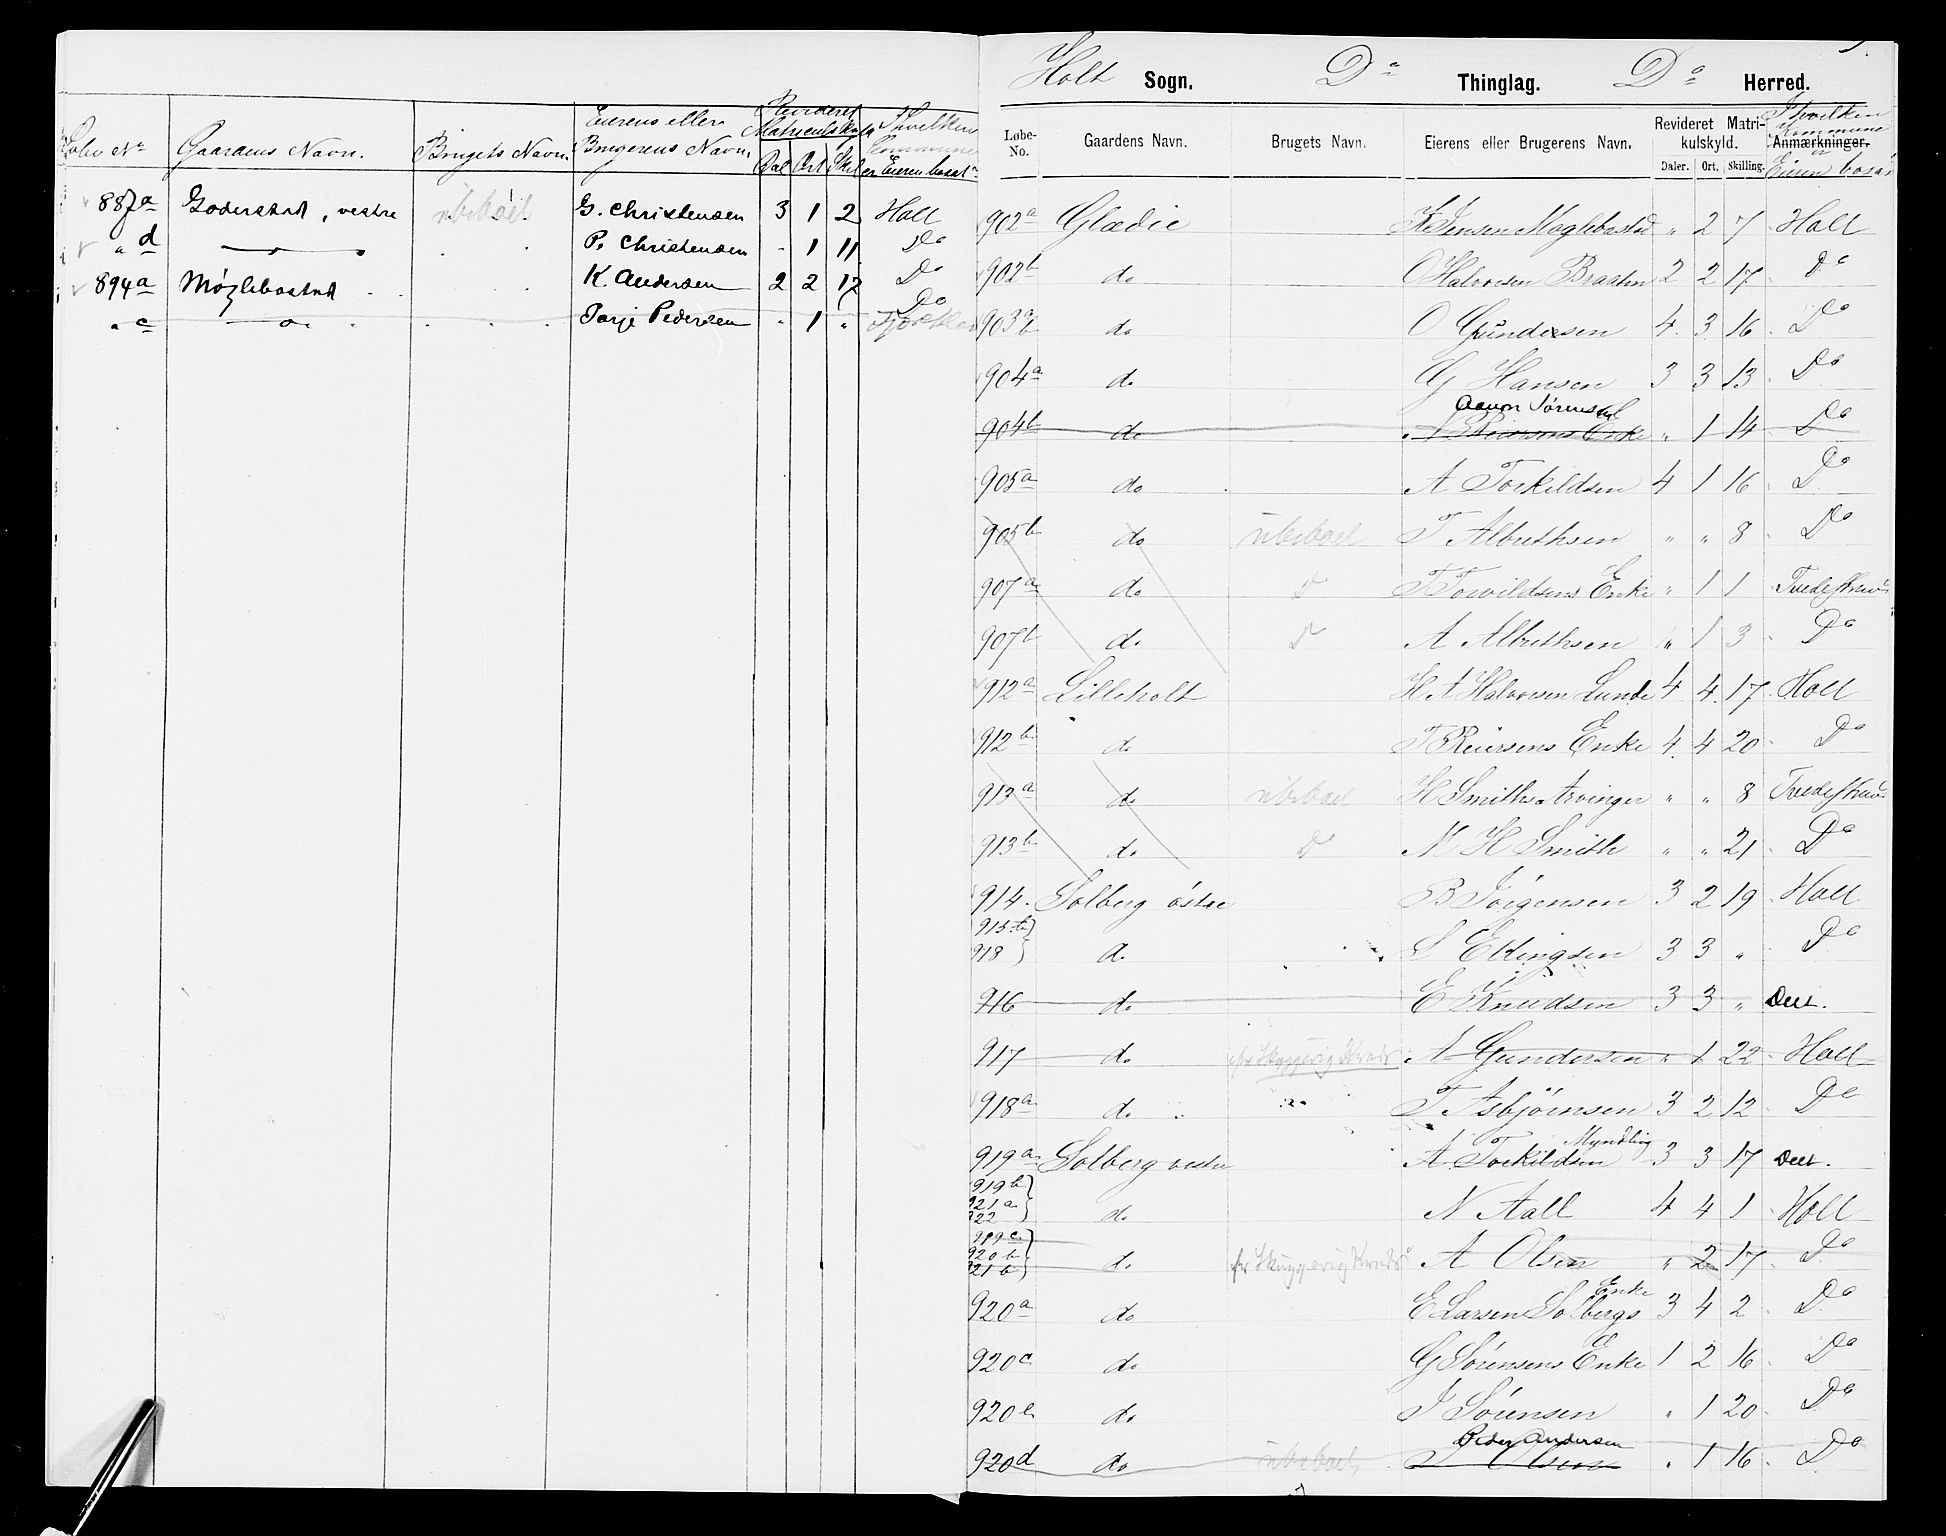 Løbe No Gaardens Navn. Brugets Navn. Eierens eller Brugerens Navn. Revideret Matriculskyld Dal Ort Skil I hvilken Commune er Eieren bosat
887a Goderstad, vestre ubeboet G. Christensen 3 1 2 Holt
" d — P. Christensen - 1 11 Do
894a Møglebostad K. Andersen 2 2 17 Do
" c — Tarje Pedersen - 1 " Do
Holt Sogn. Do Thinglag. Do Herred.
Løbe-No. Gaardens Navn. Brugets Navn. Eierens eller Brugerens Navn. Revideret Matrikulskyld. Daler. Ort. Skilling. Anmærkninger. I hvilken Kommune er Eieren bosat
902a Glædie K Jensen Moglebostad " 2 7 Holt
902b do O Halvorsen Braaten 2 2 17 Do
903 do O Gundersen 4 3 16 Do
904a do G Hansen 3 3 13 Do
Aanon Sørensen
904b do N Reiersens Enke " 1 14 Do
905a do A Torkildsen 4 1 16 Do
905b do ubeboet T Albrethsen " " 8 Do
907a do Do T Torvildsens Enke " 1 1 Tvedestrand
907b do Do A Albrethsen " 1 3 Do
912a Lilleholt H A Halvorsen Lunde 4 4 17 Holt
912b do T Reiersens Enke 4 4 20 Do
913a do ubeboet H Smiths Arvinger " " 8 Tvedestrand
913b do Do N H Smith " " 21 Do
914 Solberg østre B Jörgensen 3 2 19 Holt
915b
918 do L Ellingsen 3 3 " Do
916 do E Knudsen 3 3 " Dett.
917 do N Gundersen " 1 22 Holt
918a do T Asbjörnsen 3 2 12 Do
919a Solberg vestre A Torkildsen Myndling 3 3 17 Dett.
919b
921a
922 do N Aall 4 4 1 Holt
919c
920b
921b do A Olsen " 2 17 Do
920a do E Larsen Solbergs Enke 3 4 2 Do
920c do G Sörensens Enke 1 2 16 Do
920e do J Sörensen " 1 20 Do
Peder Andersen
920d do ubeboet J Olsen " 1 16 Do